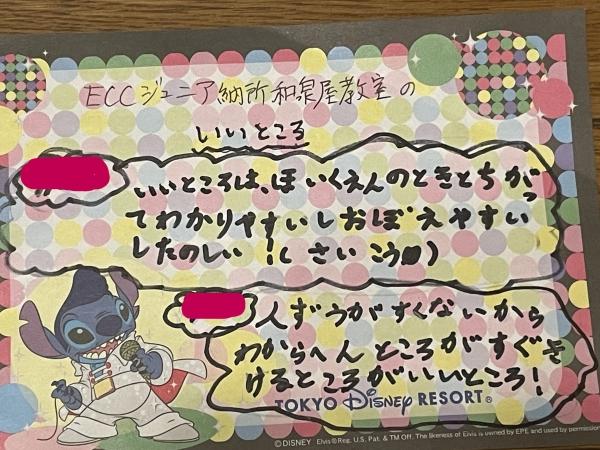 ECCジュニア納所和泉屋教室の
いいところ
いいところは、ほいくえんのときとちがっ
てわかりやすいしおぼえやすい
したのしい!(さいこう)
人ずうがすくないから
わからへんところがすぐき
けるところがいいところ!
TOKYO Disney RESORT®
©DISNEY Elvis®Reg. U.S. Pat. & TM Off. The likeness of Elvis is owned by EPE and used by permission